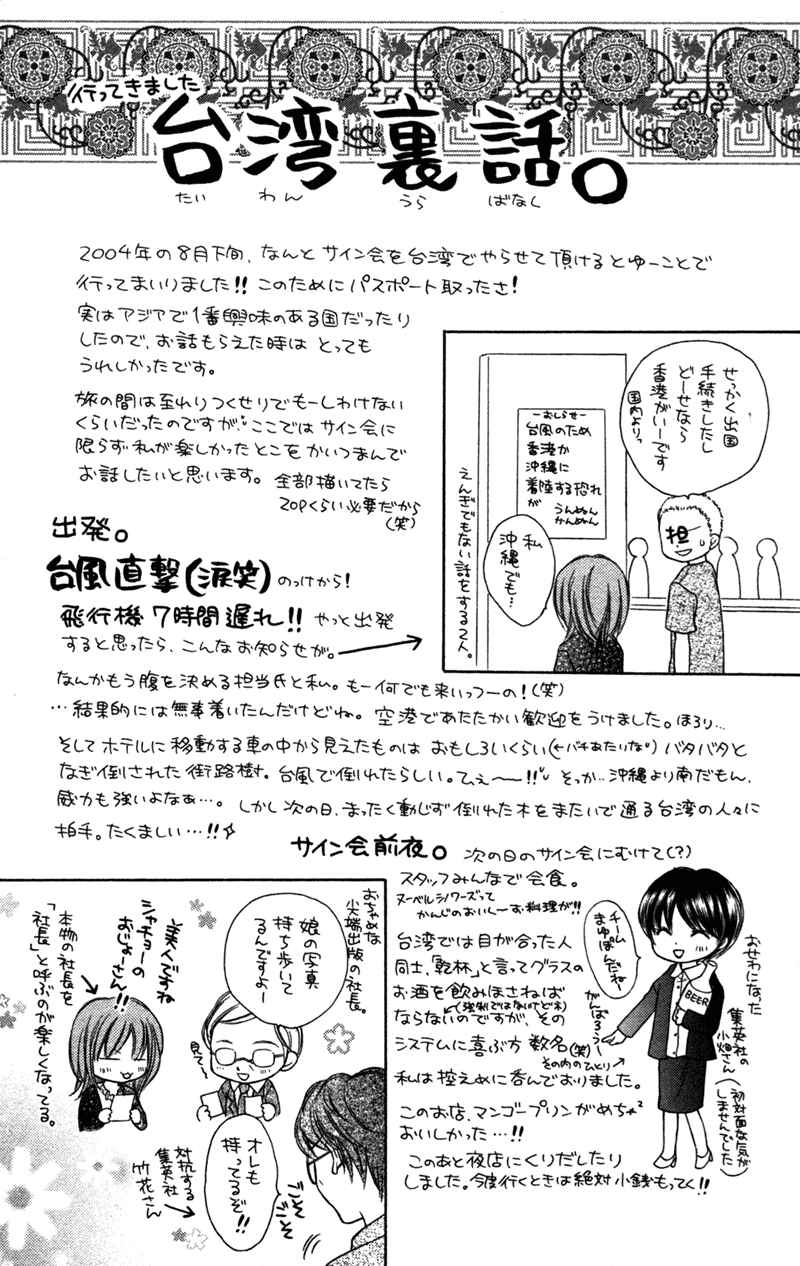 行ってきました
台湾裏話。
たい わん うら ばなし
2004年の8月下旬、なんとサイン会を台湾でやらせて頂けるとゆーことで
行ってまいりました!! このためにパスポート取ったさ!
実はアジアで1番興味のある国だったり
したので、お話もらえた時は とっても
うれしかったです。
旅の間は至れりつくせりでもーしわけない
くらいだったのですが、ここでは サイン会に
限らず 私が楽しかったとこをかいつまんで
お話したいと思います。全部描いてたら
20Pくらい必要だから
(笑)
せっかく出国
手続きしたし
どーせなら
香港がいーです
国内より。
ーおしらせー
台風のため
香港か
沖縄に
着陸する恐れ
が うんぬん
かんぬん
担
私
沖縄でも…
えんぎでもない話をする2人。
出発。
台風直撃(涙笑) のっけから!
飛行機 7時間遅れ!! やっと出発
すると思ったら、こんなお知らせが。
なんかもう腹を決める担当氏と私。もー何でも来いっつーの!(笑)
…結果的には無事着いたんだけどね。空港であたたかい歓迎をうけました。ほろり…
そしてホテルに移動する車の中から見えたものは おもしろいくらい(←バチあたりな)バタバタと
なぎ倒された街路樹。台風で倒れたらしい。ひぇ〜〜!! そっか…沖縄より南だもん、
威力も強いよなぁ…。しかし次の日、まったく動じず 倒れた木をまたいで通る台湾の人々に
拍手。たくましい…!!☆
サイン会前夜。 次の日のサイン会にむけて(?)
スタッフみんなで会食。
ヌーベルシノワーズって
かんじのおいし〜お料理が!!
台湾では目が合った人
同士、「乾杯」と言ってグラスの
お酒を飲みほさねば
ならないのですが、その
(強制ではないけどネ)
システムに喜ぶ方 数名(笑)
その内のひとり
私は控えめに呑んでおりました。
このお店、マンゴープリンがめちゃ2
おいしかった…!!
このあと夜店にくりだしたり
しました。今度行くときは絶対小銭もってく!!
チーム
まゆぽんだねー
がんばろうー
BEER
おせわになった
集英社の
小畑さん
(初対面な気が
しませんでした)
おちゃめな
尖端出版の社長。
娘の写真
持ち歩いて
るんですよー
見て〜
美人ですね
シャチョーの
おじょーさん!!
本物の社長を
「社長」と呼ぶのが楽しくなってる。
オレも
持ってるぞ!!
ごそ
ごそ
対抗する
集英社
竹花さん